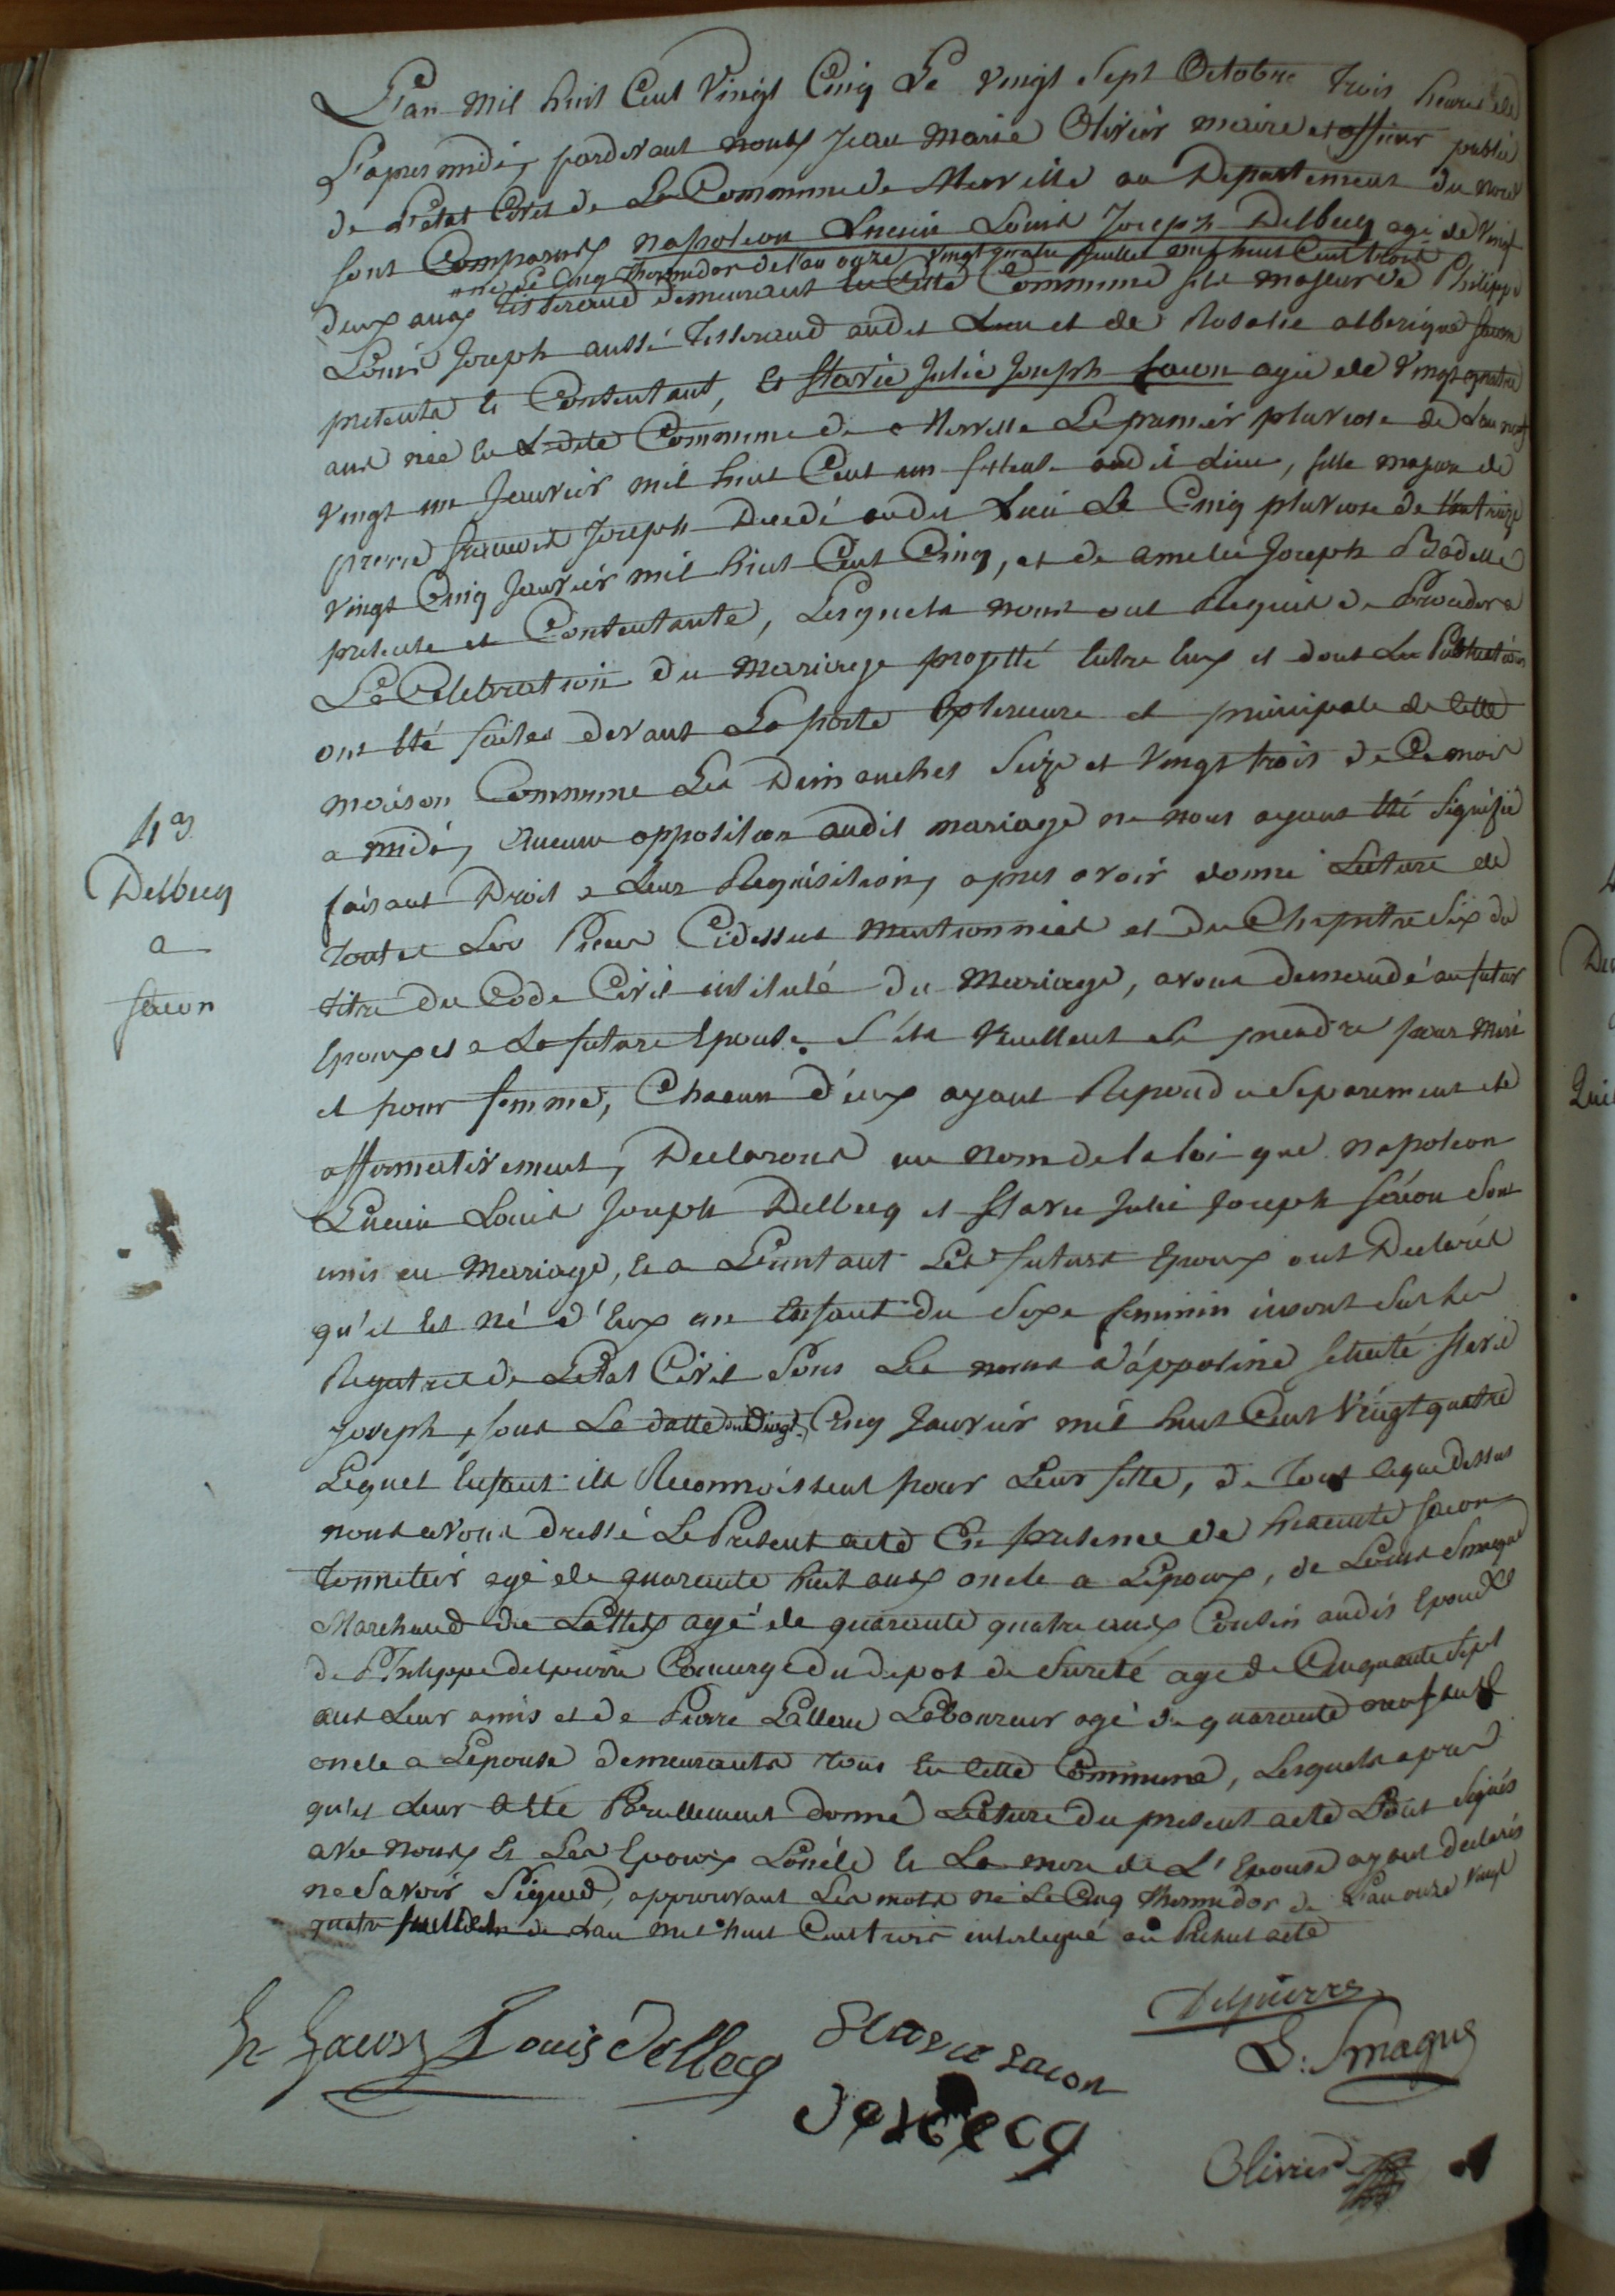 L'an Mil huit Cent Vingt Cinq Le Vingt Sept Octobre trois heures de
L'apres midi, pardevant nous Jean Marie Olivier maire et officier public
de l'etat Civil de La Commune de Merville au Departement du nord
sont Comparus napoleon Lucien Louis Joseph Delbecq agé de Vingt
né le Cinq thermidor de l'an onze Vingt quatre juillet mil huit Cent trois
deux ans tisserand demeurant en Cette Commune fils majeur de Philippe
Louis Joseph aussi tisserand audit Lieu et de Rosalie alberique facon
presents et Consentant, et Flavie Julie Joseph facon agée de Vingt quatre
ans née en Ladite Commune de Merville Le premier pluviose de L'an neuf
Vingt un Janvier mil huit Cent un audit Lieu, fille majeure de
pierre francois Joseph Decedé audit Lieu Le Cinq pluviose de l'an treize
Vingt Cinq Janvier mil huit Cent Cinq, et de amelie Joseph Badelle
presente et Consentante, Lesquels nous ont Requis de Proceder a
La Celebration du Mariage projetté Entre Eux et dont Les Publications
ont Eté faites devant La porte Exterieure et principale de Cette
maison Commune Les Dimanches Seize et Vingt trois de Ce mois
a midi, Aucune opposition audit mariage ne nous ayant Eté Signifiée
faisant Droit a Leur Requisition, apres avoir donné Lecture de
toutes Les Pieces Cidessus Mentionnées et du Chapitre Six du
titre du Code Civil intitulé du Mariage, avons demandé au futur
Epoux et a La future Epouse S'ils Veullent Se prendre pour Mari
et pour femme, Chacun d'eux ayant Repondu Separement et
affirmativement, Declarons au nom de la loi que napoleon
Lucien Louis Joseph Delbecq et Flavie Julie Joseph facon Sont
unis en Mariage, Et a L'instant Les futurs Epoux ont Declarés
qu'il Est né d'Eux un Enfant du Sexe feminin inscrit Sur Les
Registres de L'etat Civil Sous Les noms d'apporline Flavie
Joseph, sous La datte du Vingt Cinq Janvier mil huit Cent Vingt quatre
Lequel Enfant ils Reconnoissent pour Leur fille, de tout Ce que dessus
nous avons dressé Le Present acte En presence de hiacinte facon
tonnelier agé de quarante huit ans oncle a L'epoux, de Louis Smagne
Marchand de Lattes agé de quarante quatre ans Cousin audit Epoux
de Philippe delpierre Concierge du depot de Sureté agé de Cinquante Sept
ans Leur amis et de Pierre Laboureur agé de quarante neuf ans
oncle a L'epouse demeurants tous En Cette Commune, Lesquels apres
qu'il Leur a Eté Pareillement donné Lecture du present acte L'ont Signés
avec nous Et Les Epoux Et La mere de L'Epouse ayant declarés
ne Savoir Signer, approuvant Les mots né Le Cinq thermidor de L'an onze Vingt
quatre juillet de L'an mil huit Cent trois interligné au Present acte
43
Delbecq
a
facon
h facon Louis delbecq Flavie facon
Delpierre
L: Smagne
delbecq
Olivier